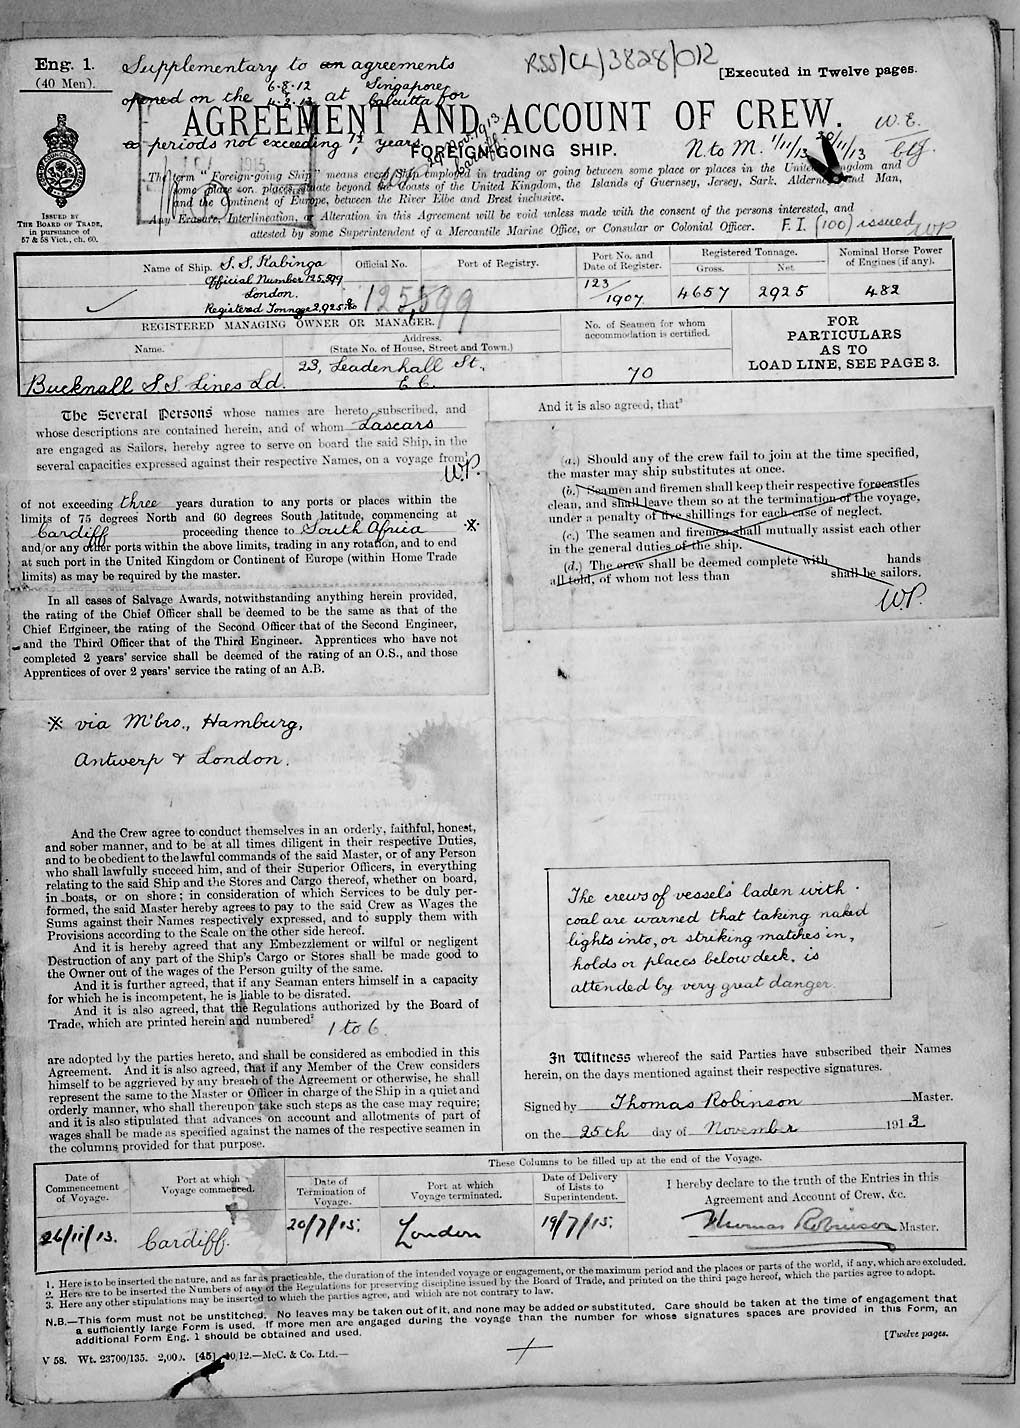 Eng. 1.
(40 Men).
Supplementary to an agreements
opened on the 6.8.12 at Singapore
4.3.13 Calcutta for
a periods not exceeding 1½ years
RSS/CL/3828/012
[Executed in Twelve pages.
AGREEMENT AND ACCOUNT OF CREW.
FOREIGN-GOING SHIP.
W.E.
N. to M. 1/11/13
ISSUED BY
THE BOARD OF TRADE,
in pursuance of
57 & 58 Vict., ch. 60.
The term "Foreign-going Ship" means every Ship employed in trading or going between some place or places in the United Kingdom and
some place or places situate beyond the Coasts of the United Kingdom, the Islands of Guernsey, Jersey, Sark, Alderney and Man,
and the Continent of Europe, between the River Elbe and Brest inclusive.
Any Erasure, Interlineation, or Alteration in this Agreement will be void unless made with the consent of the persons interested, and
attested by some Superintendent of a Mercantile Marine Office, or Consular or Colonial Officer.
F. I. (100) issued WP
Name of Ship. S.S. Kabinga
Official Number 125,599
London.
Registered Tonnage 2,925
Official No.
125,599
Port of Registry.
Port No. and
Date of Register.
123/1907
Registered Tonnage.
Gross. Net.
4657 2925
Nominal Horse Power
of Engines (if any).
482
REGISTERED MANAGING OWNER OR MANAGER.
Name.
Address.
(State No. of House, Street and Town.)
Bucknall S.S. Lines Ld.
23, Leadenhall St.,
E.C.
No. of Seamen for whom
accommodation is certified.
70
FOR
PARTICULARS
AS TO
LOAD LINE, SEE PAGE 3.
The Several Persons whose names are hereto subscribed, and
whose descriptions are contained herein, and of whom Lascars
are engaged as Sailors, hereby agree to serve on board the said Ship, in the
several capacities expressed against their respective Names, on a voyage from¹
W.P.
of not exceeding three years duration to any ports or places within the
limits of 75 degrees North and 60 degrees South latitude, commencing at
Cardiff proceeding thence to South Africa ※
and/or any other ports within the above limits, trading in any rotation, and to end
at such port in the United Kingdom or Continent of Europe (within Home Trade
limits) as may be required by the master.
In all cases of Salvage Awards, notwithstanding anything herein provided,
the rating of the Chief Officer shall be deemed to be the same as that of the
Chief Engineer, the rating of the Second Officer that of the Second Engineer,
and the Third Officer that of the Third Engineer. Apprentices who have not
completed 2 years' service shall be deemed of the rating of an O.S., and those
Apprentices of over 2 years' service the rating of an A.B.
※ via M'bro., Hamburg,
Antwerp & London.
And the Crew agree to conduct themselves in an orderly, faithful, honest,
and sober manner, and to be at all times diligent in their respective Duties,
and to be obedient to the lawful commands of the said Master, or of any Person
who shall lawfully succeed him, and of their Superior Officers, in everything
relating to the said Ship and the Stores and Cargo thereof, whether on board,
in boats, or on shore; in consideration of which Services to be duly per-
formed, the said Master hereby agrees to pay to the said Crew as Wages the
Sums against their Names respectively expressed, and to supply them with
Provisions according to the Scale on the other side hereof.
And it is hereby agreed that any Embezzlement or wilful or negligent
Destruction of any part of the Ship's Cargo or Stores shall be made good to
the Owner out of the wages of the Person guilty of the same.
And it is further agreed, that if any Seaman enters himself in a capacity
for which he is incompetent, he is liable to be disrated.
And it is also agreed, that the Regulations authorized by the Board of
Trade, which are printed herein and numbered² 1 to 6
are adopted by the parties hereto, and shall be considered as embodied in this
Agreement. And it is also agreed, that if any Member of the Crew considers
himself to be aggrieved by any breach of the Agreement or otherwise, he shall
represent the same to the Master or Officer in charge of the Ship in a quiet and
orderly manner, who shall thereupon take such steps as the case may require;
and it is also stipulated that advances on account and allotments of part of
wages shall be made as specified against the names of the respective seamen in
the columns provided for that purpose.
And it is also agreed, that³
(a.) Should any of the crew fail to join at the time specified,
the master may ship substitutes at once.
(b.) Seamen and firemen shall keep their respective forecastles
clean, and shall leave them so at the termination of the voyage,
under a penalty of five shillings for each case of neglect.
(c.) The seamen and firemen shall mutually assist each other
in the general duties of the ship.
(d.) The crew shall be deemed complete with hands
all told, of whom not less than shall be sailors.
W.P.
The crews of vessels laden with
coal are warned that taking naked
lights into, or striking matches in,
holds or places below deck, is
attended by very great danger.
In Witness whereof the said Parties have subscribed their Names
herein, on the days mentioned against their respective signatures.
Signed by Thomas Robinson Master.
on the 25th day of November 1913
These Columns to be filled up at the end of the Voyage.
Date of
Commencement
of Voyage.
26/11/13.
Port at which
Voyage commenced.
Cardiff.
Date of
Termination of
Voyage.
20/7/15.
Port at which
Voyage terminated.
London
Date of Delivery
of Lists to
Superintendent.
19/7/15.
I hereby declare to the truth of the Entries in this
Agreement and Account of Crew, &c.
Thomas Robinson Master.
1. Here is to be inserted the nature, and as far as practicable, the duration of the intended voyage or engagement, or the maximum period and the places or parts of the world, if any, which are excluded.
2. Here are to be inserted the Numbers of any of the Regulations for preserving discipline issued by the Board of Trade, and printed on the third page hereof, which the parties agree to adopt.
3. Here any other stipulations may be inserted to which the parties agree, and which are not contrary to law.
N.B.—This form must not be unstitched. No leaves may be taken out of it, and none may be added or substituted. Care should be taken at the time of engagement that
a sufficiently large Form is used. If more men are engaged during the voyage than the number for whose signatures spaces are provided in this Form, an
additional Form Eng. 1 should be obtained and used.
[Twelve pages.
V 58. Wt. 23700/135. 2,000. [45] 10/12.—McC. & Co. Ltd.—